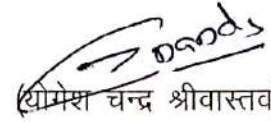 (योगेश चन्द्र श्रीवास्तव